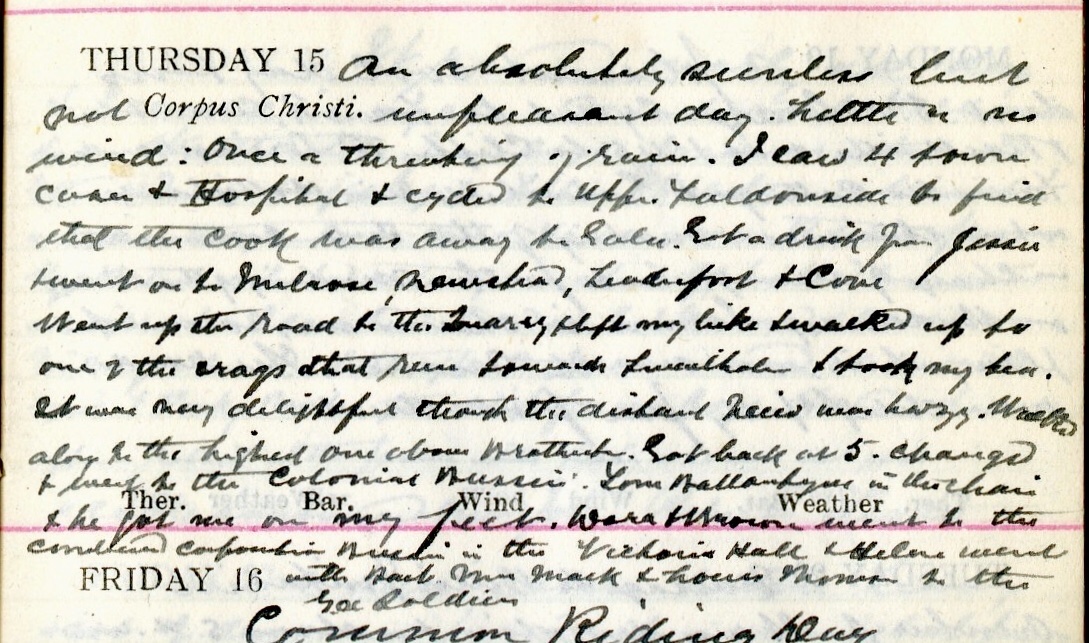 THURSDAY 15 An absolutely sunless but
not Corpus Christi. unpleasant day. Little or no
wind: Once a threatening of rain. I saw 4 town
cases & Hospital & cycled to Upper to find
that the cook was away to Gala. Got a drink from Jessie
& went on to Melrose, Newstead, Leaderfoot &
Went up the road to the Quarry & left my bike & walked up to
one of the crags that run towards & took my tea.
It was very delightful though the distant view was hazy. Walked
along to the highest one above. Got back at 5. Changed
& went to the Colonial Bussin. Tom Ballantyne in the chair
Ther. Bar. Wind Weather
& he got me on my feet. & Brown went to the
combined corporation Bussin in the Victoria Hall & Helen went
FRIDAY 16 with Mrs Mack & to the
Soldiers
Common Riding Day